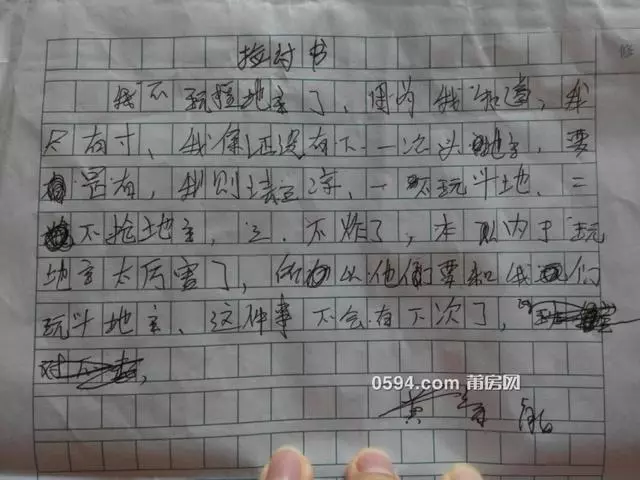 检讨书
我不玩抢地主了、因为我知道,我
只有寸、我保证没有下一次斗地主,要
是有,我则  一不玩斗地、二
不抢地主,三.不炸了,本以内于玩
地主太厉害了,所以他们要和我们
玩斗地主、这件事不会有下次了,
0594.com 莆房网
黄